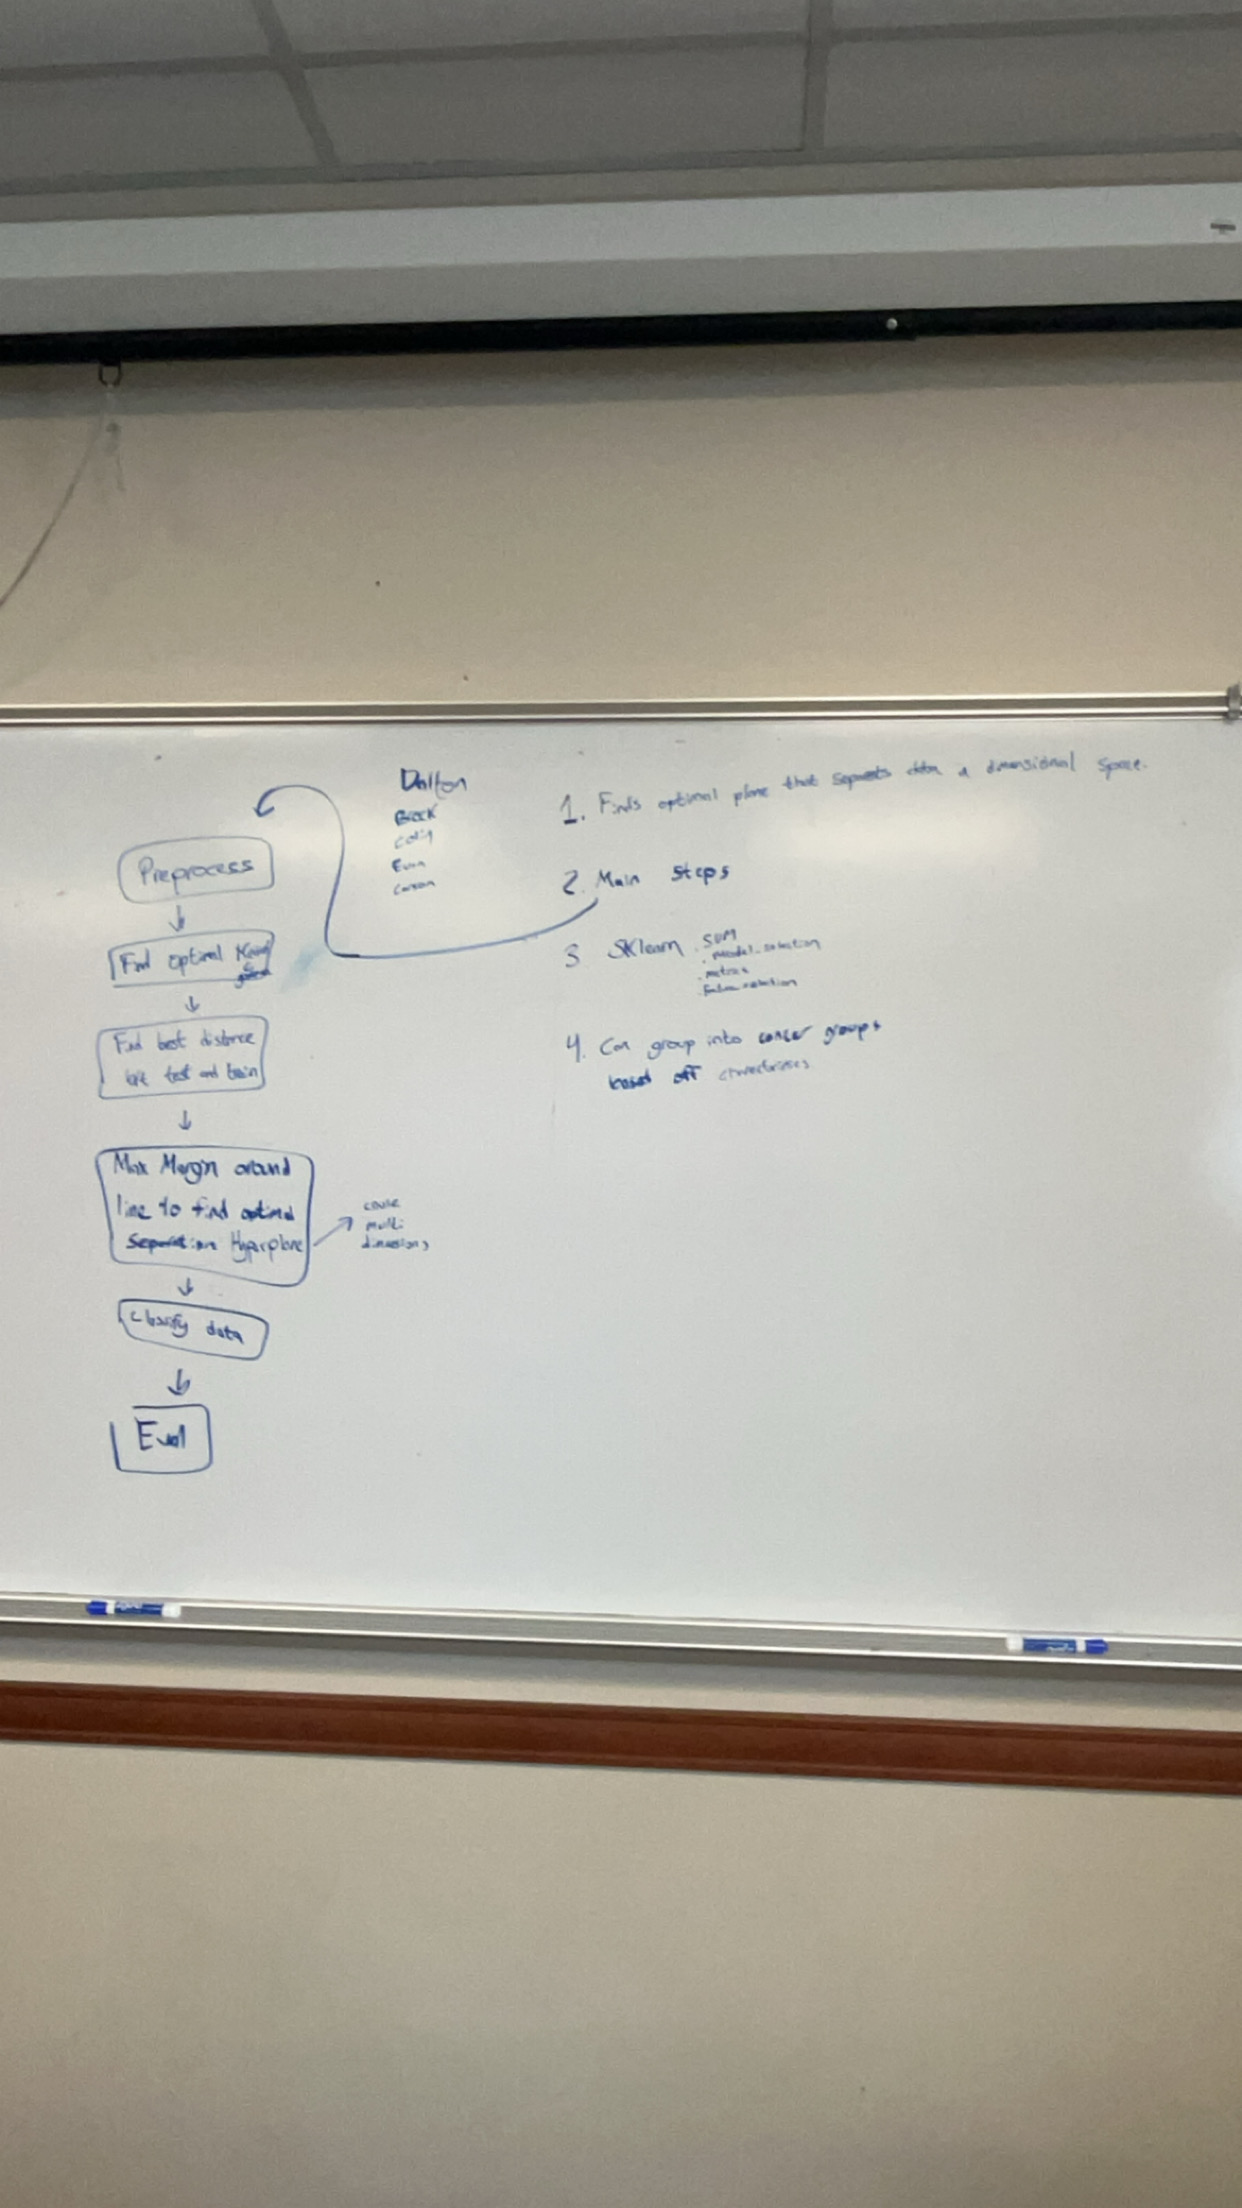 Dalton
Brock
Colin
Evan
Carson
Preprocess
Find optimal
Find best distance
test and train
Max Margin around
line to find optimal
Separation Hyperplane
multi
dimensions
classify data
Eval
1. Finds optimal plane that separates data a dimensional space.
2. Main Steps
3 SKlearn . SVM
. model_selection
. metrics
4. Can group into cancer groups
based off